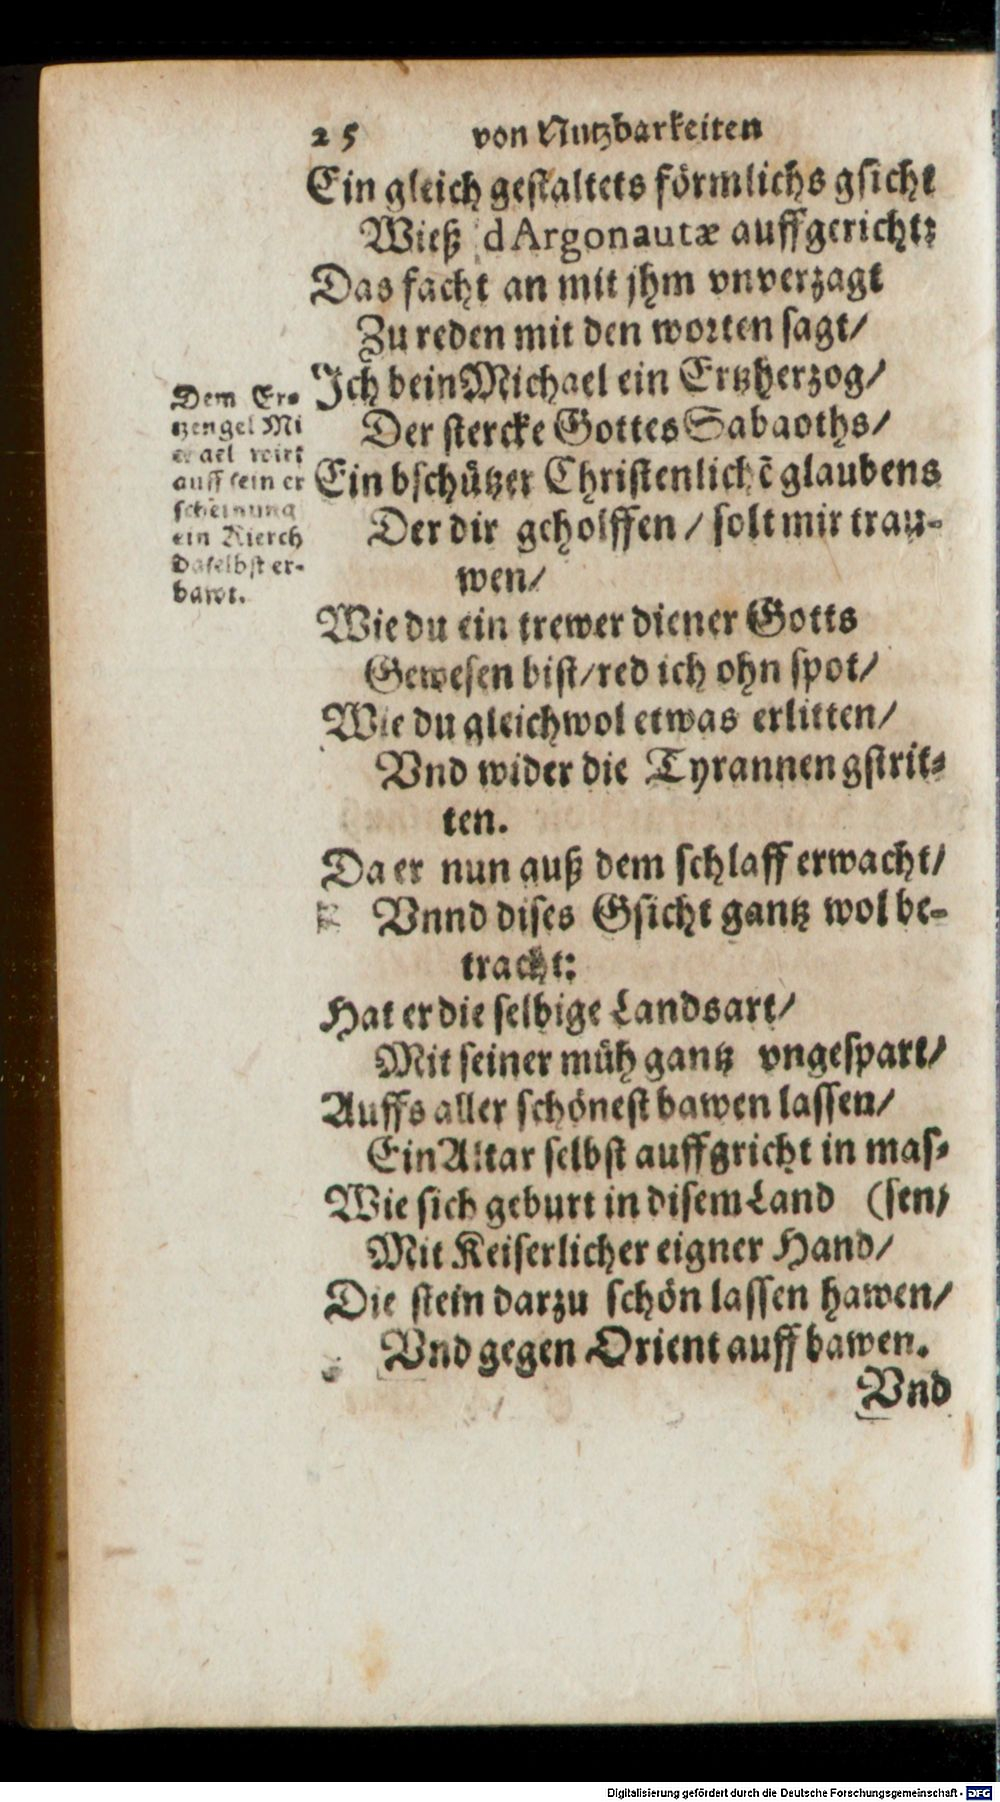 25 von Nutzbarkeiten
Ein gleich gestaltets förmlichs gsicht
Wieß dArgonautæ auffgericht:
Das facht an mit jhm vnverzagt
Zu reden mit den worten sagt/
Ich bein Michael ein Ertzherzog/
Der stercke Gottes Sabaoths/
Ein bschützer Christenlichē glaubens
Der dir geholffen / solt mir trau-
wen/
Wie du ein trewer diener Gotts
Gewesen bist/ red ich ohn spot/
Wie du gleichwol etwas erlitten/
Vnd wider die Tyrannen gstrit-
ten.
Da er nun auß dem schlaff erwacht/
Vnnd dises Gsicht gantz wol be-
tracht:
Hat er die selbige Landsart/
Mit seiner müh gantz vngespart/
Auffs aller schönest bawen lassen/
Ein Altar selbst auffgricht in mas-
Wie sich geburt in disem Land (sen/
Mit Keiserlicher eigner Hand/
Die stein darzu schön lassen hawen/
Vnd gegen Orient auff bawen.
Vnd
Dem Er-
tzengel Mi
chael wirt
auff sein er
scheinung
ein Kierch
daselbst er-
bawt.
Digitalisierung gefördert durch die Deutsche Forschungsgemeinschaft - DFG